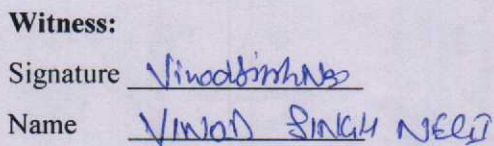 Witness:
Signature VinodSinghNegi
Name VINOD SINGH NEGI